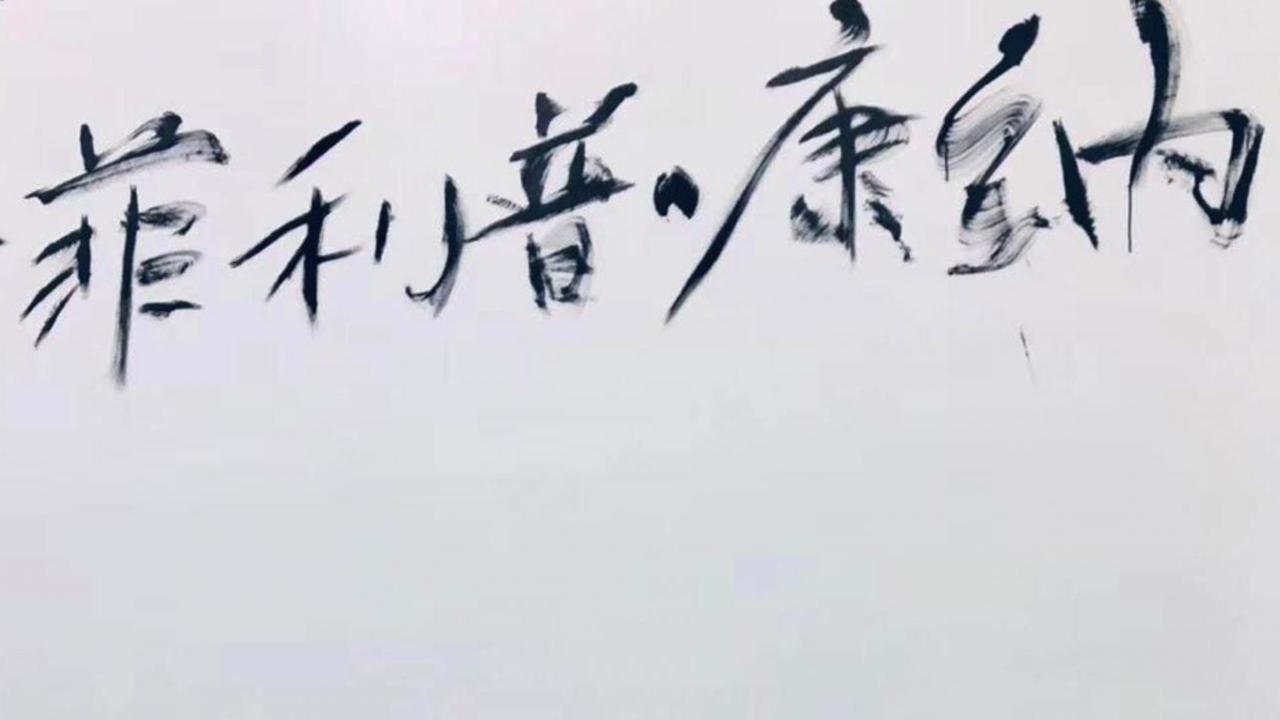 菲利普·康纳